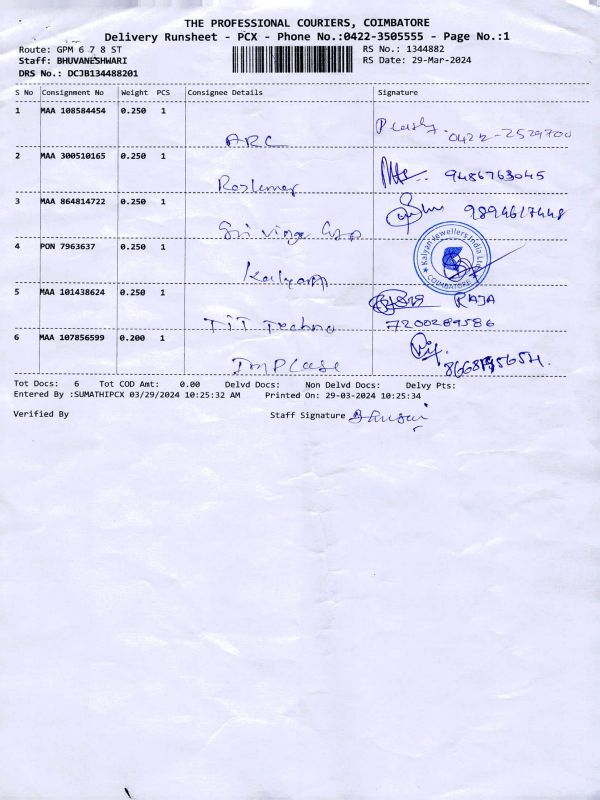 THE PROFESSIONAL COURIERS, COIMBATORE
Delivery Runsheet - PCX - Phone No.:0422-3505555 - Page No.:1
Route: GPM 6 7 8 ST RS No.: 1344882
Staff: BHUVANESHWARI RS Date: 29-Mar-2024
DRS No.: DCJB134488201
S No Consignment No Weight PCS Consignee Details Signature
1 MAA 108584454 0.250 1
ARC 0422-2529700
2 MAA 300510165 0.250 1
9486763045
3 MAA 864814722 0.250 1
Sri 9894617448
Kalyan Jewellers India Ltd
COIMBATORE
4 PON 7963637 0.250 1
Kalyan
5 MAA 101438624 0.250 1
RAJA
TIT Techno 7200289586
6 MAA 107856599 0.200 1
Tot Docs: 6 Tot COD Amt: 0.00 Delvd Docs: Non Delvd Docs: Delvy Pts:
Entered By :SUMATHIPCX 03/29/2024 10:25:32 AM Printed On: 29-03-2024 10:25:34
Verified By Staff Signature